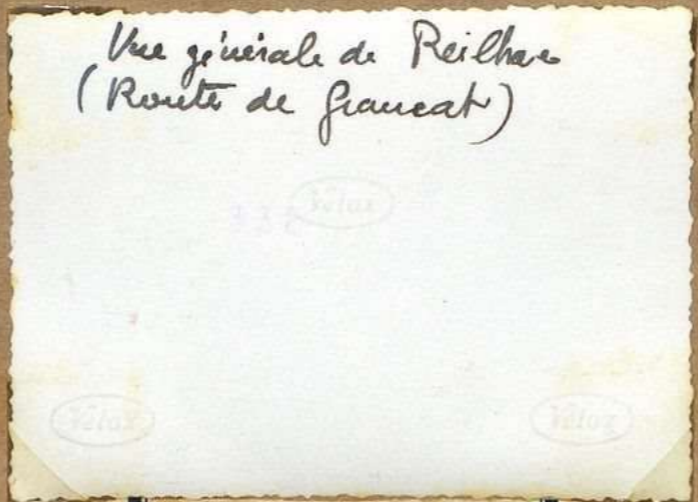 Vue générale de Reilhac
(Route de
Velox
Velox
Velox